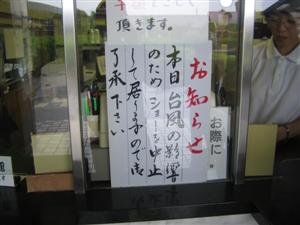 頂きます。
お知らせ
本日台風の影響
のためショーを中止
して居りますので御
了承下さい
お際に